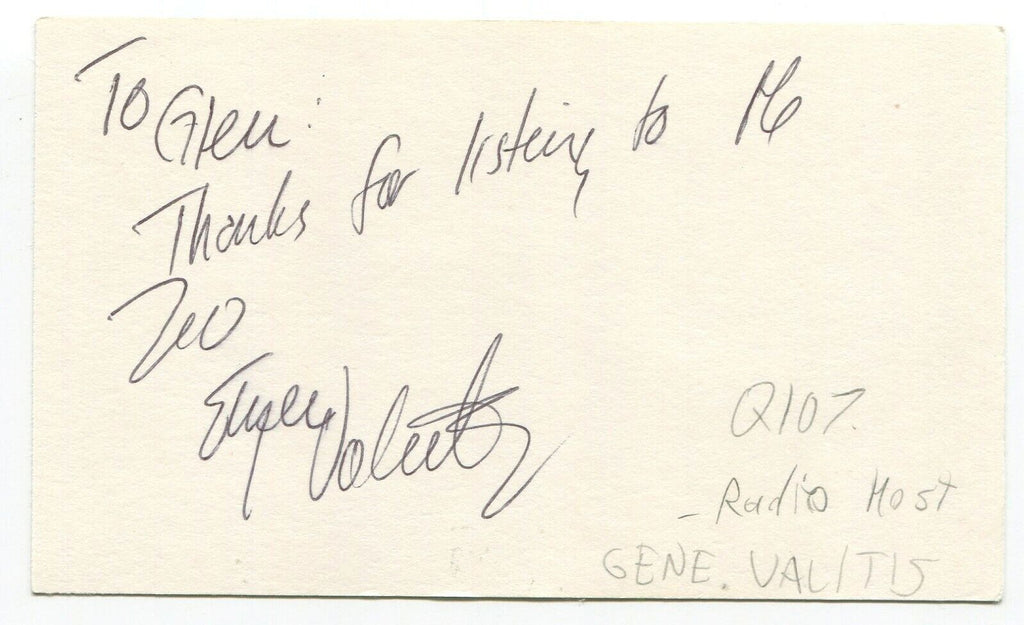 To Glen:
Thanks for listening to Me
Eugene Valaitis
Q107.
- Radio Host
GENE. VALITIS